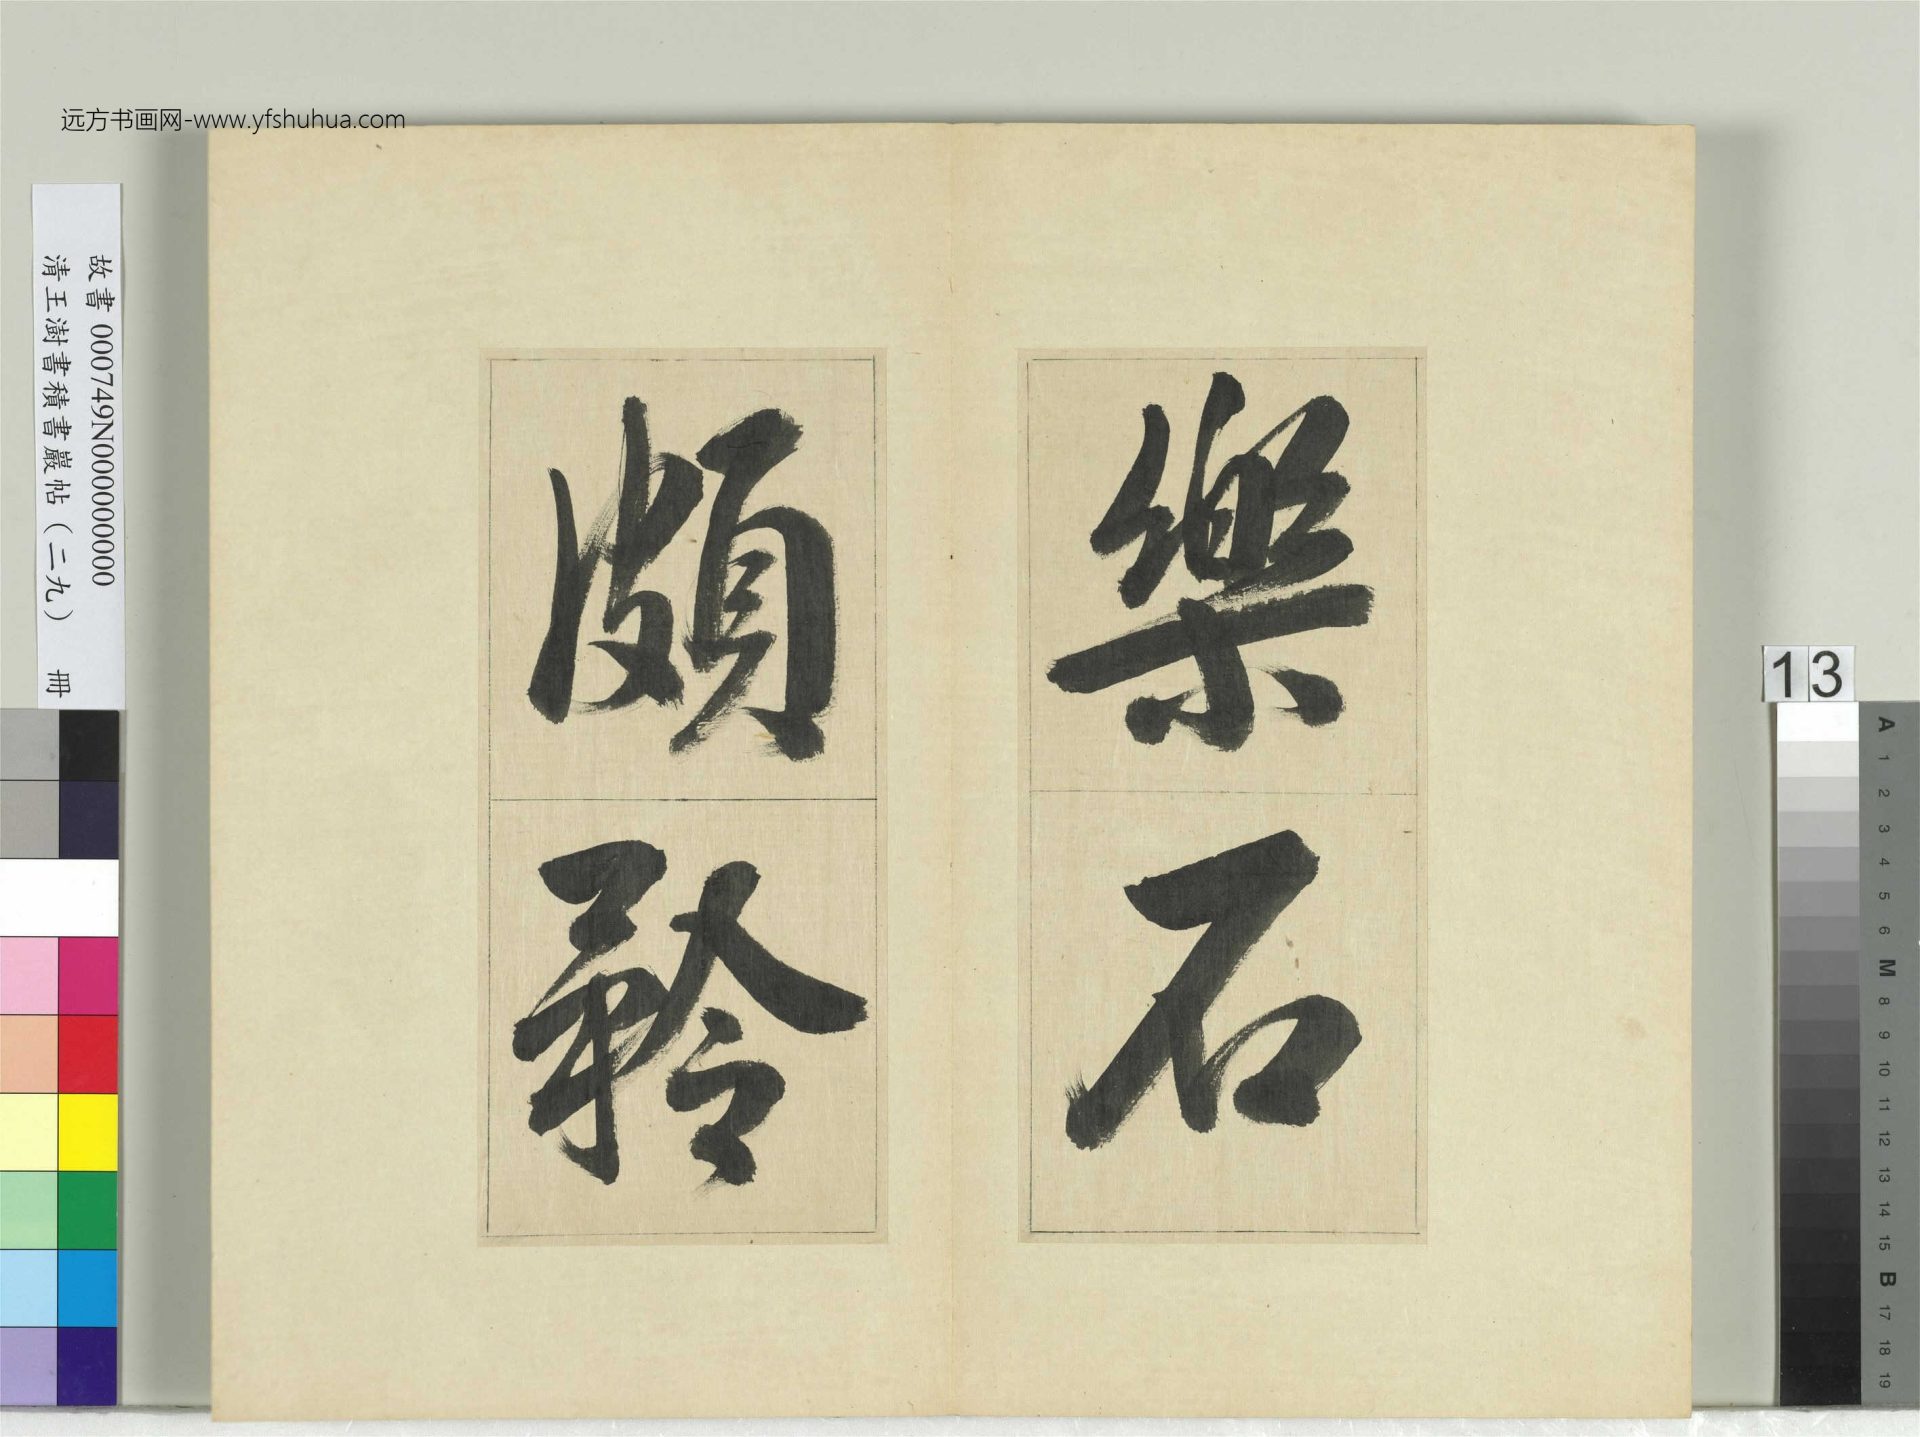 远方书画网-www.yfshuhua.com
故書 000749N000000000
清王澍書積書巖帖（二九） 冊
樂石
頗矜
13
A
1
2
3
4
5
6
M
8
9
10
11
12
13
14
15
B
17
18
19